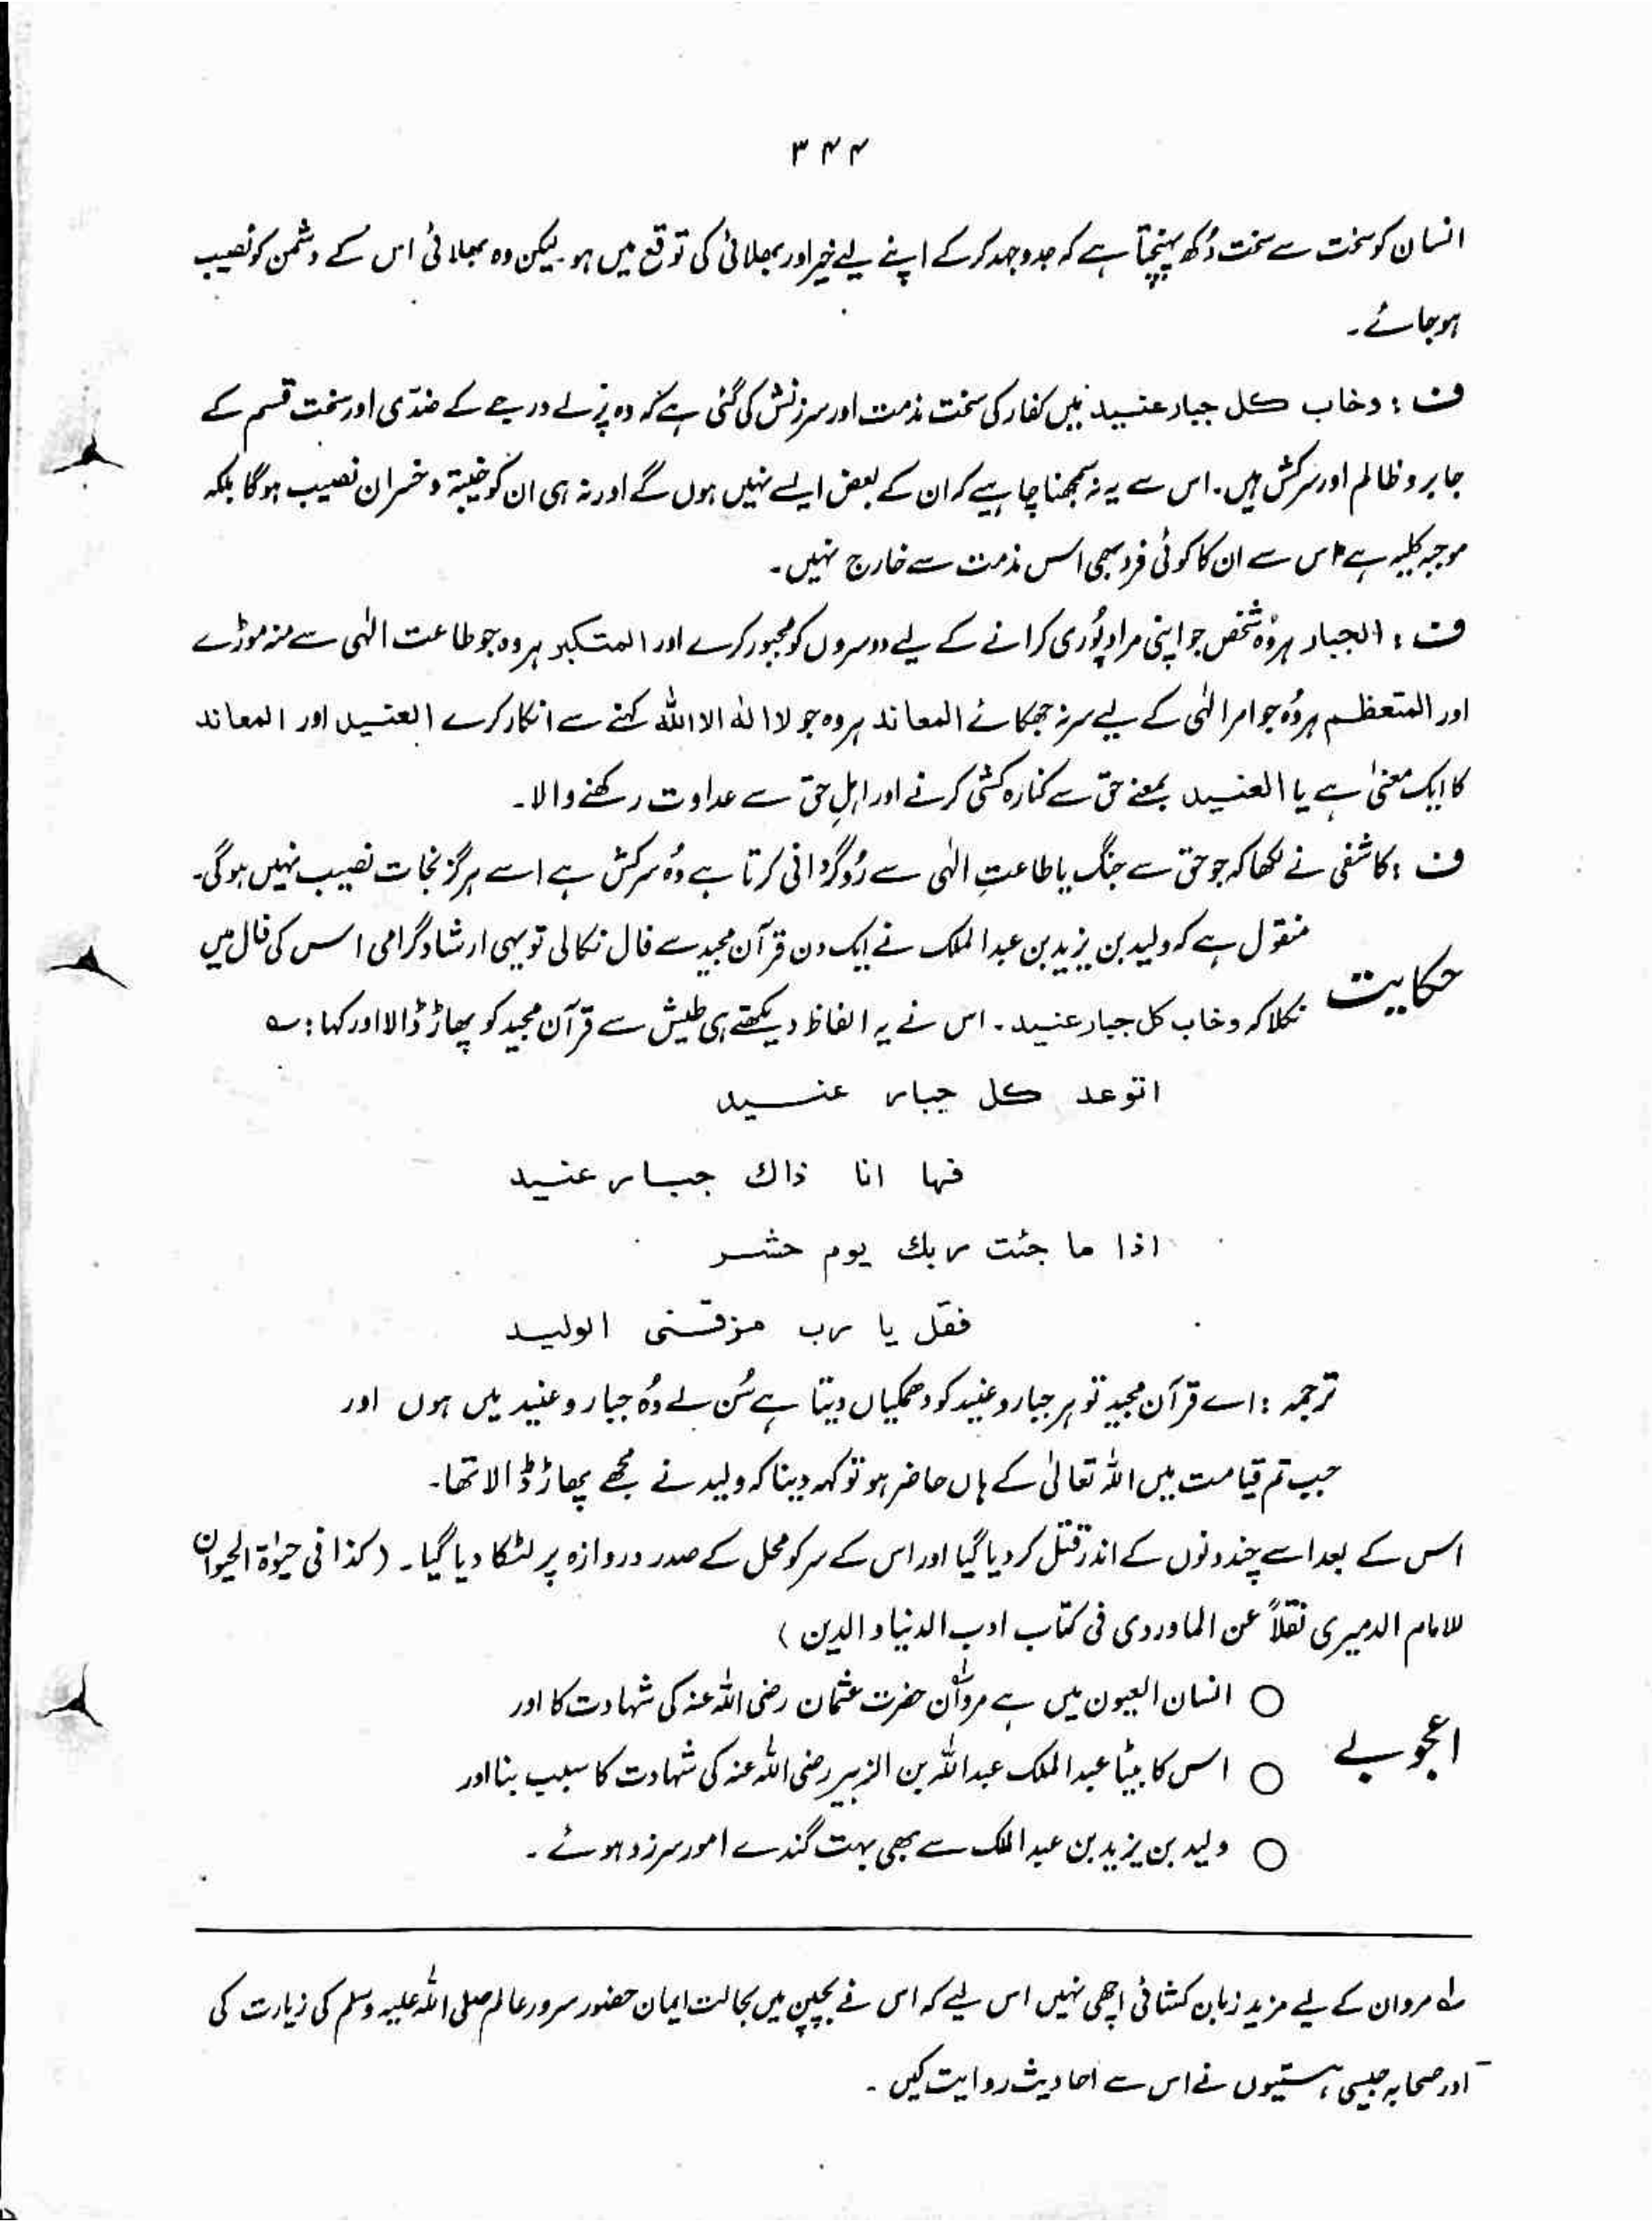 ۳۴۴
انسان کو سخت سے سخت دُکھ پہنچتا ہے کہ جدوجہد کر کے اپنے لیے خیر اور بھلائی کی توقع میں ہو۔ لیکن وہ بھلائی اس کے دشمن کو نصیب
ہو جائے۔
ف : وخاب کل جبار عنید میں کفار کی سخت مذمت اور سرزنش کی گئی ہے کہ وہ پرلے درجے کے ضدّی اور سخت قسم کے
جابر و ظالم اور سرکش ہیں۔ اس سے یہ نہ سمجھنا چاہیے کہ ان کے بعض ایسے نہیں ہوں گے اور نہ ہی ان کو خیبۃ و خسران نصیب ہوگا بلکہ
موجبہ کلیہ ہے اس سے ان کا کوئی فرد بھی اس مذمت سے خارج نہیں۔
ف : الجبار ہر وُہ شخص جو اپنی مراد پُوری کرانے کے لیے دوسروں کو مجبور کرے اور المتکبر ہر وہ جو طاعت الٰہی سے منہ موڑے
اور المتعظم ہر وُہ جو امر الٰہی کے لیے سر نہ جھکائے المعاند ہر وہ جو لا الٰہ الا اللہ کہنے سے انکار کرے العنید اور المعاند
کا ایک معنیٰ ہے یا العنید بمعنے حق سے کنارہ کشی کرنے اور اہلِ حق سے عداوت رکھنے والا۔
ف : کاشفی نے لکھا کہ جو حق سے جنگ یا طاعتِ الٰہی سے رُوگردانی کرتا ہے وُہ سرکش ہے اسے ہرگز نجات نصیب نہیں ہوگی۔
حکایت منقول ہے کہ ولید بن یزید بن عبد الملک نے ایک دن قرآن مجید سے فال نکالی تو یہی ارشاد گرامی اس کی فال میں
نکلا کہ وخاب کل جبار عنید۔ اس نے یہ الفاظ دیکھتے ہی طیش سے قرآن مجید کو پھاڑ ڈالا اور کہا : ؎
اتوعد کل جبار عنید
فها انا ذاك جبار عنید
اذا ما جئت ربك یوم حشر
فقل یا رب مزقنی الولید
ترجمہ : اے قرآن مجید تو ہر جبار و عنید کو دھمکیاں دیتا ہے سُن لے وُہ جبار و عنید میں ہوں اور
جب تم قیامت میں اللہ تعالیٰ کے ہاں حاضر ہو تو کہہ دینا کہ ولید نے مجھے پھاڑ ڈالا تھا۔
اس کے بعد اسے چند دنوں کے اندر قتل کر دیا گیا اور اس کے سر کو محل کے صدر دروازہ پر لٹکا دیا گیا۔ (کذا فی حیٰوۃ الحیوان
للامام الدمیری نقلاً عن الماوردی فی کتاب ادب الدنیا والدین)
اعجوبے ○ انسان العیون میں ہے مروان لہ حضرت عثمان رضی اللہ عنہ کی شہادت کا اور
○ اس کا بیٹا عبدالملک عبداللہ بن الزبیر رضی اللہ عنہ کی شہادت کا سبب بنا اور
○ ولید بن یزید بن عبدالملک سے بھی بہت گندے امور سرزد ہوئے۔
لہ مروان کے لیے مزید زبان کشائی اچھی نہیں اس لیے کہ اس نے بچپن میں بحالت ایمان حضور سرور عالم صلی اللہ علیہ وسلم کی زیارت کی
اور صحابہ جیسی ہستیوں نے اس سے احادیث روایت کیں۔